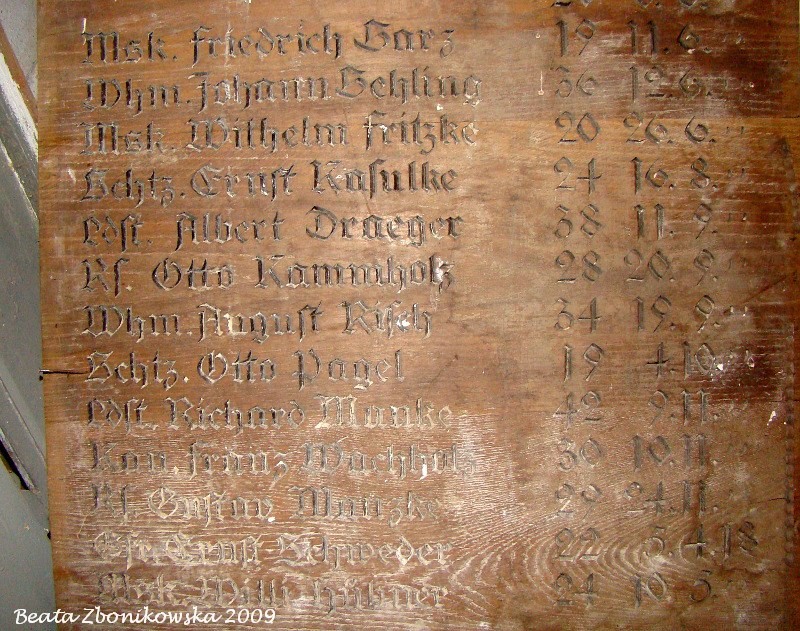 Msk. Friedrich Garz 19 11. 6. "
Whm. Johann Gehling 36 12. 6. "
Msk. Wilhelm Fritzke 20 26. 6. "
Schtz. Ernst Kasulke 24 16. 8. "
Ldst. Albert Draeger 38 11. 9. "
Rs Otto Kammholz 28 20. 9. "
Whm. August Risch 34 19. 9. "
Schtz. Otto Pagel 19 4. 10. "
Ldst. Richard Manke 42 9. 11. "
Kan. Franz Wachholz 30 10. 11. "
Rs. Gustav Manzke 29 24. 11. "
Ernst Schweder 22 5. 4. 18
Msk. Willi Hübner 24 10 5.
Beata Zbonikowska 2009